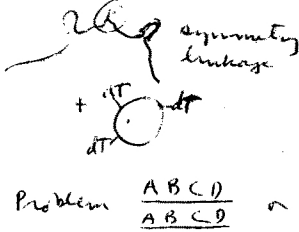 symmetry
linkage
+ dT dT
dT
Problem A B C D
A B C D